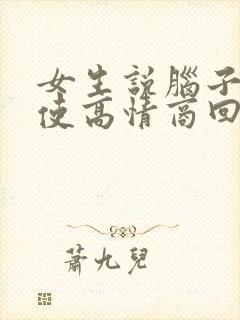 女生說腦子
使高情商回
蕭九兒